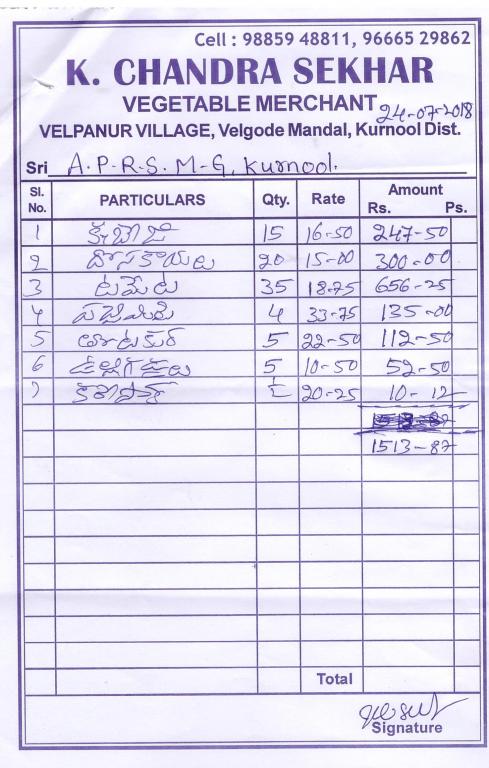 Cell : 98859 48811, 96665 29862
K. CHANDRA SEKHAR
VEGETABLE MERCHANT
24-07-2018
VELPANUR VILLAGE, Velgode Mandal, Kurnool Dist.
Sri A.P.R.S.M-G, Kurnool.
Sl. No. PARTICULARS Qty. Rate Amount Rs. Ps.
1 15 16-50 247-50
2 దోసకాయలు 20 15-00 300-00
3 టమేటు 35 18.75 656-25
4 పచ్చిమిర్చి 4 33-75 135-00
5 5 22-50 112-50
6 ఉల్లిగడ్డలు 5 10-50 52-50
7 20-25 10-12
1513-87
Total
Signature